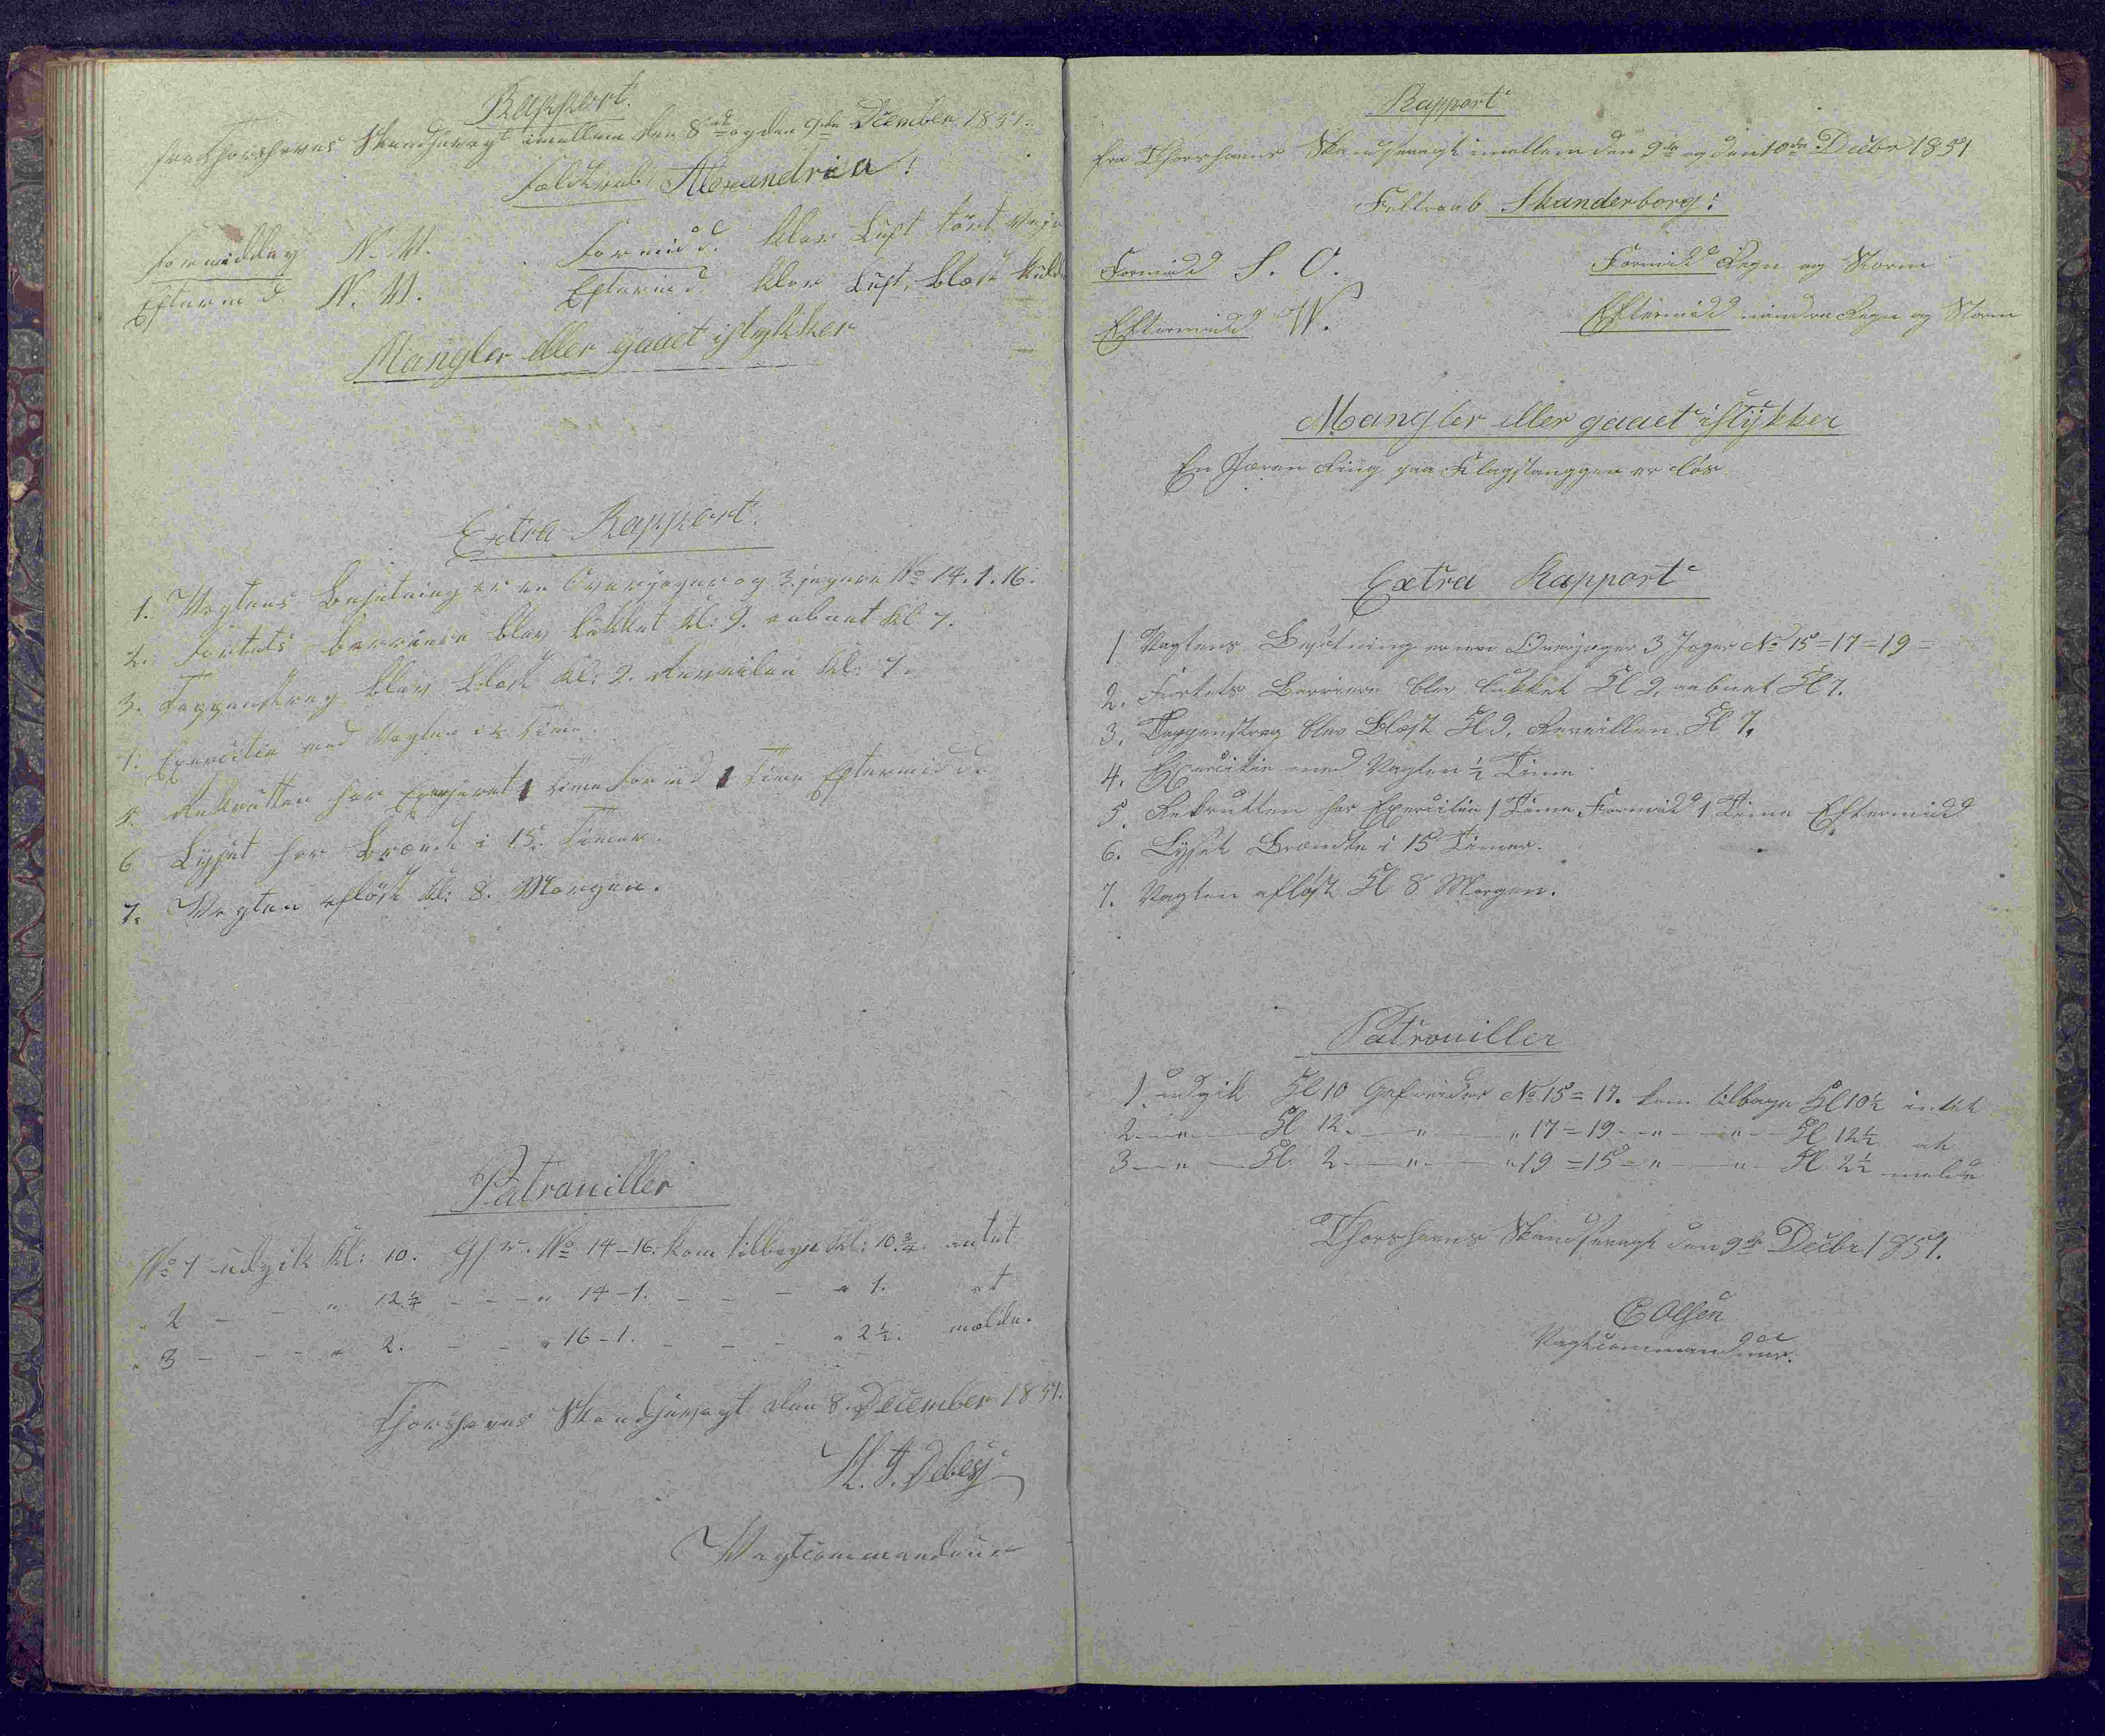 Rapport.
fra Thorshavns Skandsevagt imellem den 8de og den 9de December 1851.
Feldtraab Alexandria!
Formiddag N. W. Formidd. klar Luft tört Vejr
Eftermd. N. W. Eftermd. klar Luft, blæst kulde
Mangler eller gaaet istykker
Extra Rapport.
1. Vagtens Besætning er en Overjæger og 3 jægere No 14. 1. 16.
2. Fortets barriere blev lukket kl: 9. aabnet kl 7.
3. Tappenstreg blev blæst kl: 9. Reveilen kl: 7.
4. Exercitie med Vagten i ½ Time.
5. Rekrutten har Exerseret 1 time Formd 1 Time Eftermidd.
6 Lyset har brændt i 15. Timer.
7. Vagten aflöst kl: 8. Morgen.
Patrouiller
No 1 udgik kl: 10. Gfr. No 14-16. kom tilbage kl: 10.¾. intet
" 2 - - " 12.¼ - - - " 14-1. - - - " 1. at
" 3 - - - " 2. - - " 16-1. - - - " 2½. melde.
Thorshavns Skandsevagt den 8. December 1851.
H. J. Debes
Vagtcommandeur
Rapport
fra Thorshavns Skandsevagt imellem den 9de og den 10de Decbr 1851
Feltraab Skanderborg:
Formidd S. O. Formidd Regn og Storm
Eftermidd W. Eftermidd mindre Regn og Storm
Mangler eller gaaet istykker
En Jæren Ring paa Flagstanggen er lös.
Extra Rapport
1 Vagtens Besætning er een Overjæger 3 Jæger No 15=17=19=
2. Fortets Barriere blev lukket Kl 9, aabnet Kl 7.
3. Tappenstreg blev Blæst Kl 9. Reveillen Kl 7.
4. Exercitie med Vagten ½ Time
5. Rekrutten har Exercitie 1 Time Formidd 1 Time Eftermidd
6. Lyset Brændte i 15 Timer.
7. Vagten aflöst Kl 8 Morgen.
Patrouiller
1 udgik Kl 10 Gefreider No 15=17. kom tilbage Kl 10½ intet
2 - " - Kl 12. - " - " 17=19 - " - " - Kl 12½ at
3 - " - Kl. 2 - " - " 19=15 - " - " - Kl 2½ melde
Thorshavns Skandsevagt den 9de Decbr 1851.
C Olsen
Vagtcommandeur.